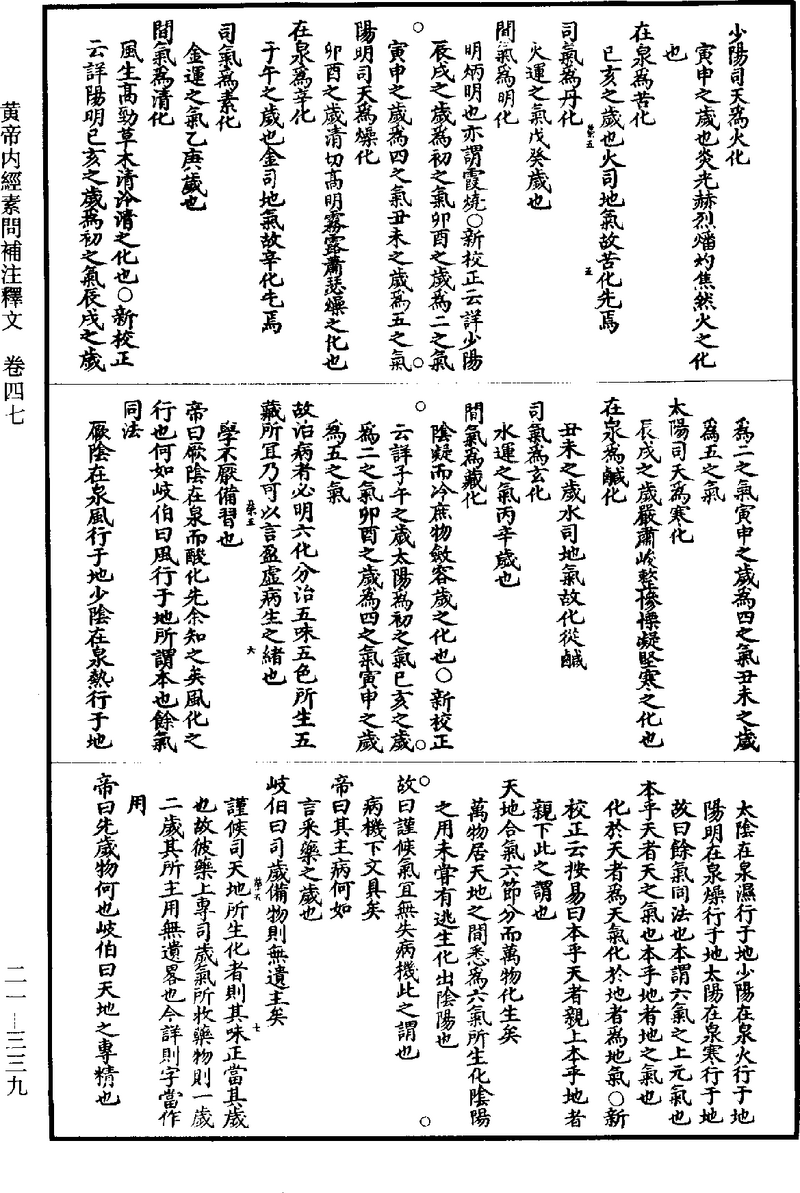 少陽司天爲火化
寅申之歲也炎光赫烈燔灼焦然火之化
也
在泉爲苦化
巳亥之歲也火司地氣故苦化先焉
司氣爲丹化
火運之氣戊癸歲也
間氣爲明化
明炳明也亦謂霞燒○新校正云詳少陽
辰戌之歲爲初之氣卯酉之歲爲二之氣
寅申之歲爲四之氣丑未之歲爲五之氣
陽明司天爲燥化
卯酉之歲清切高明霧露蕭瑟燥之化也
在泉爲辛化
子午之歲也金司地氣故辛化先焉
司氣爲素化
金運之氣乙庚歲也
間氣爲清化
風生高勁草木清冷清之化也○新校正
云詳陽明巳亥之歲爲初之氣辰戌之歲
爲二之氣寅申之歲爲四之氣丑未之歲
爲五之氣
太陽司天爲寒化
辰戌之歲嚴肅峻整慘慄凝堅寒之化也
在泉爲鹹化
丑未之歲水司地氣故化從鹹
司氣爲玄化
水運之氣丙辛歲也
間氣爲藏化
陰凝而冷庶物斂容歲之化也○新校正
云詳子午之歲太陽爲初之氣巳亥之歲
爲二之氣卯酉之歲爲四之氣寅申之歲
爲五之氣
故治病者必明六化分治五味五色所生五
藏所宜乃可以言盈虛病生之緒也
學不厭備習也
帝曰厥陰在泉而酸化先余知之矣風化之
行也何如岐伯曰風行于地所謂本也餘氣
同法
厥陰在泉風行于地少陰在泉熱行于地
太陰在泉濕行于地少陽在泉火行于地
陽明在泉燥行于地太陽在泉寒行于地
故曰餘氣同法也本謂六氣之上元氣也
本乎天者天之氣也本乎地者地之氣也
化於天者爲天氣化於地者爲地氣○新
校正云按易曰本乎天者親上本乎地者
親下此之謂也
天地合氣六節分而萬物化生矣
萬物居天地之間悉爲六氣所生化陰陽
之用未嘗有逃生化出陰陽也
故曰謹候氣宜無失病機此之謂也
病機下文具矣
帝曰其主病何如
言采藥之歲也
岐伯曰司歲備物則無遺主矣
謹候司天地所生化者則其味正當其歲
也故彼藥上專司歲氣所收藥物則一歲
二歲其所主用無遺畧也今詳則字當作
用
帝曰先歲物何也岐伯曰天地之專精也
黄帝内經素問補注釋文　卷四七
二一—三三九